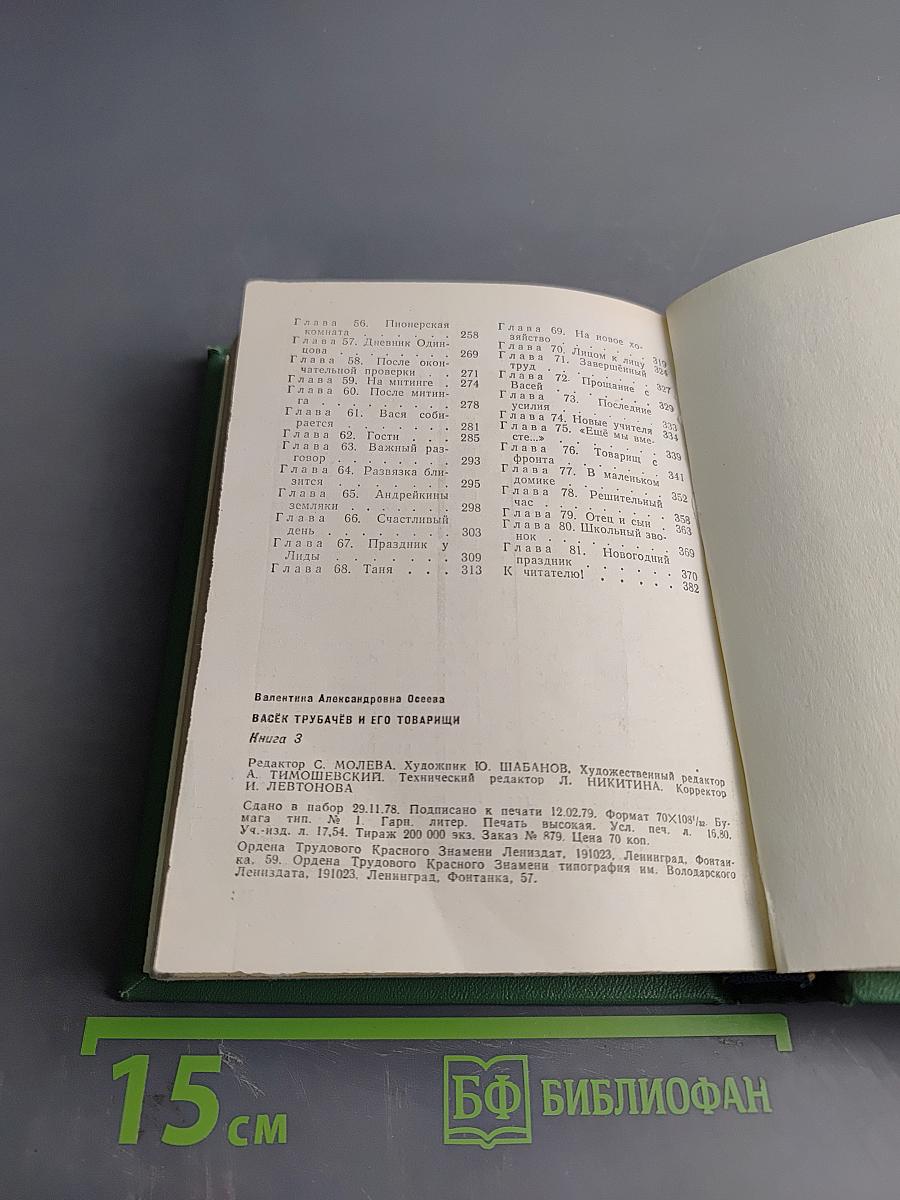 Глава 56. Пионерская
комната . . . . . . 258
Глава 57. Дневник Один-
цова . . . . . . . 269
Глава 58. После окон-
чательной проверки . . 271
Глава 59. На митинге . 274
Глава 60. После митин-
га . . . . . . . . 278
Глава 61. Вася соби-
рается . . . . . . 281
Глава 62. Гости . . . 285
Глава 63. Важный раз-
говор . . . . . . . 293
Глава 64. Развязка бли-
зится . . . . . . . 295
Глава 65. Андрейкины
земляки . . . . . . 298
Глава 66. Счастливый
день . . . . . . . 303
Глава 67. Праздник у
Лиды . . . . . . . 309
Глава 68. Таня . . . 313
Глава 69. На новое хо-
зяйство . . . . . . 319
Глава 70. Лицом к лицу 324
Глава 71. Завершённый
труд . . . . . . . 327
Глава 72. Прощание с
Васей . . . . . . . 329
Глава 73. Последние
усилия . . . . . . 333
Глава 74. Новые учителя 334
Глава 75. «Ещё мы вме-
сте...» . . . . . . 339
Глава 76. Товарищ с
фронта . . . . . . 341
Глава 77. В маленьком
домике . . . . . . 352
Глава 78. Решительный
час . . . . . . . . 358
Глава 79. Отец и сын . 363
Глава 80. Школьный зво-
нок . . . . . . . . 369
Глава 81. Новогодний
праздник . . . . . . 370
К читателю! . . . . . 382
Валентина Александровна Осеева
ВАСЁК ТРУБАЧЁВ И ЕГО ТОВАРИЩИ
Книга 3
Редактор С. МОЛЕВА. Художник Ю. ШАБАНОВ. Художественный редактор
А. ТИМОШЕВСКИЙ. Технический редактор Л. НИКИТИНА. Корректор
И. ЛЕВТОНОВА
Сдано в набор 29.11.78. Подписано к печати 12.02.79. Формат 70X108¹/₃₂. Бу-
мага тип. № 1. Гарн. литер. Печать высокая. Усл. печ. л. 16,80.
Уч.-изд. л. 17,54. Тираж 200 000 экз. Заказ № 879. Цена 70 коп.
Ордена Трудового Красного Знамени Лениздат, 191023, Ленинград, Фонтан-
ка, 59. Ордена Трудового Красного Знамени типография им. Володарского
Лениздата, 191023, Ленинград, Фонтанка, 57.
15 см
БФ БИБЛИОФАН